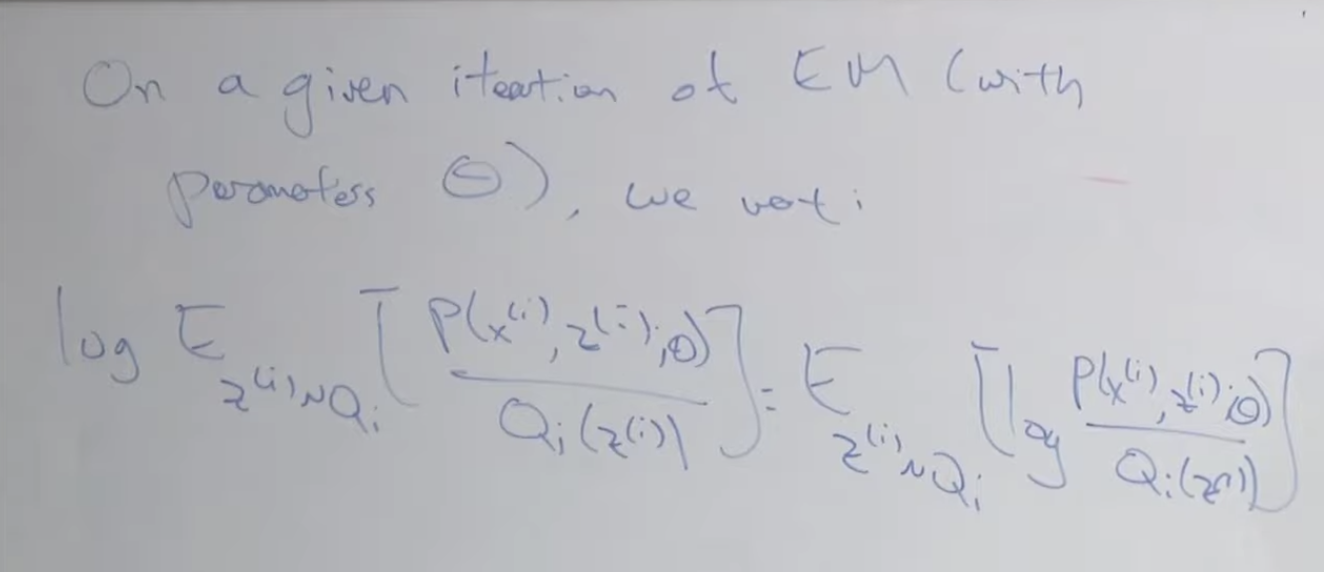 On a given iteration of EM (with
parameters Θ), we want:
log E_{z^{(i)}~Q_i} [ P(x^{(i)}, z^{(i)}; Θ) / Q_i(z^{(i)}) ] = E_{z^{(i)}~Q_i} [ log P(x^{(i)}, z^{(i)}; Θ) / Q_i(z^{(i)}) ]